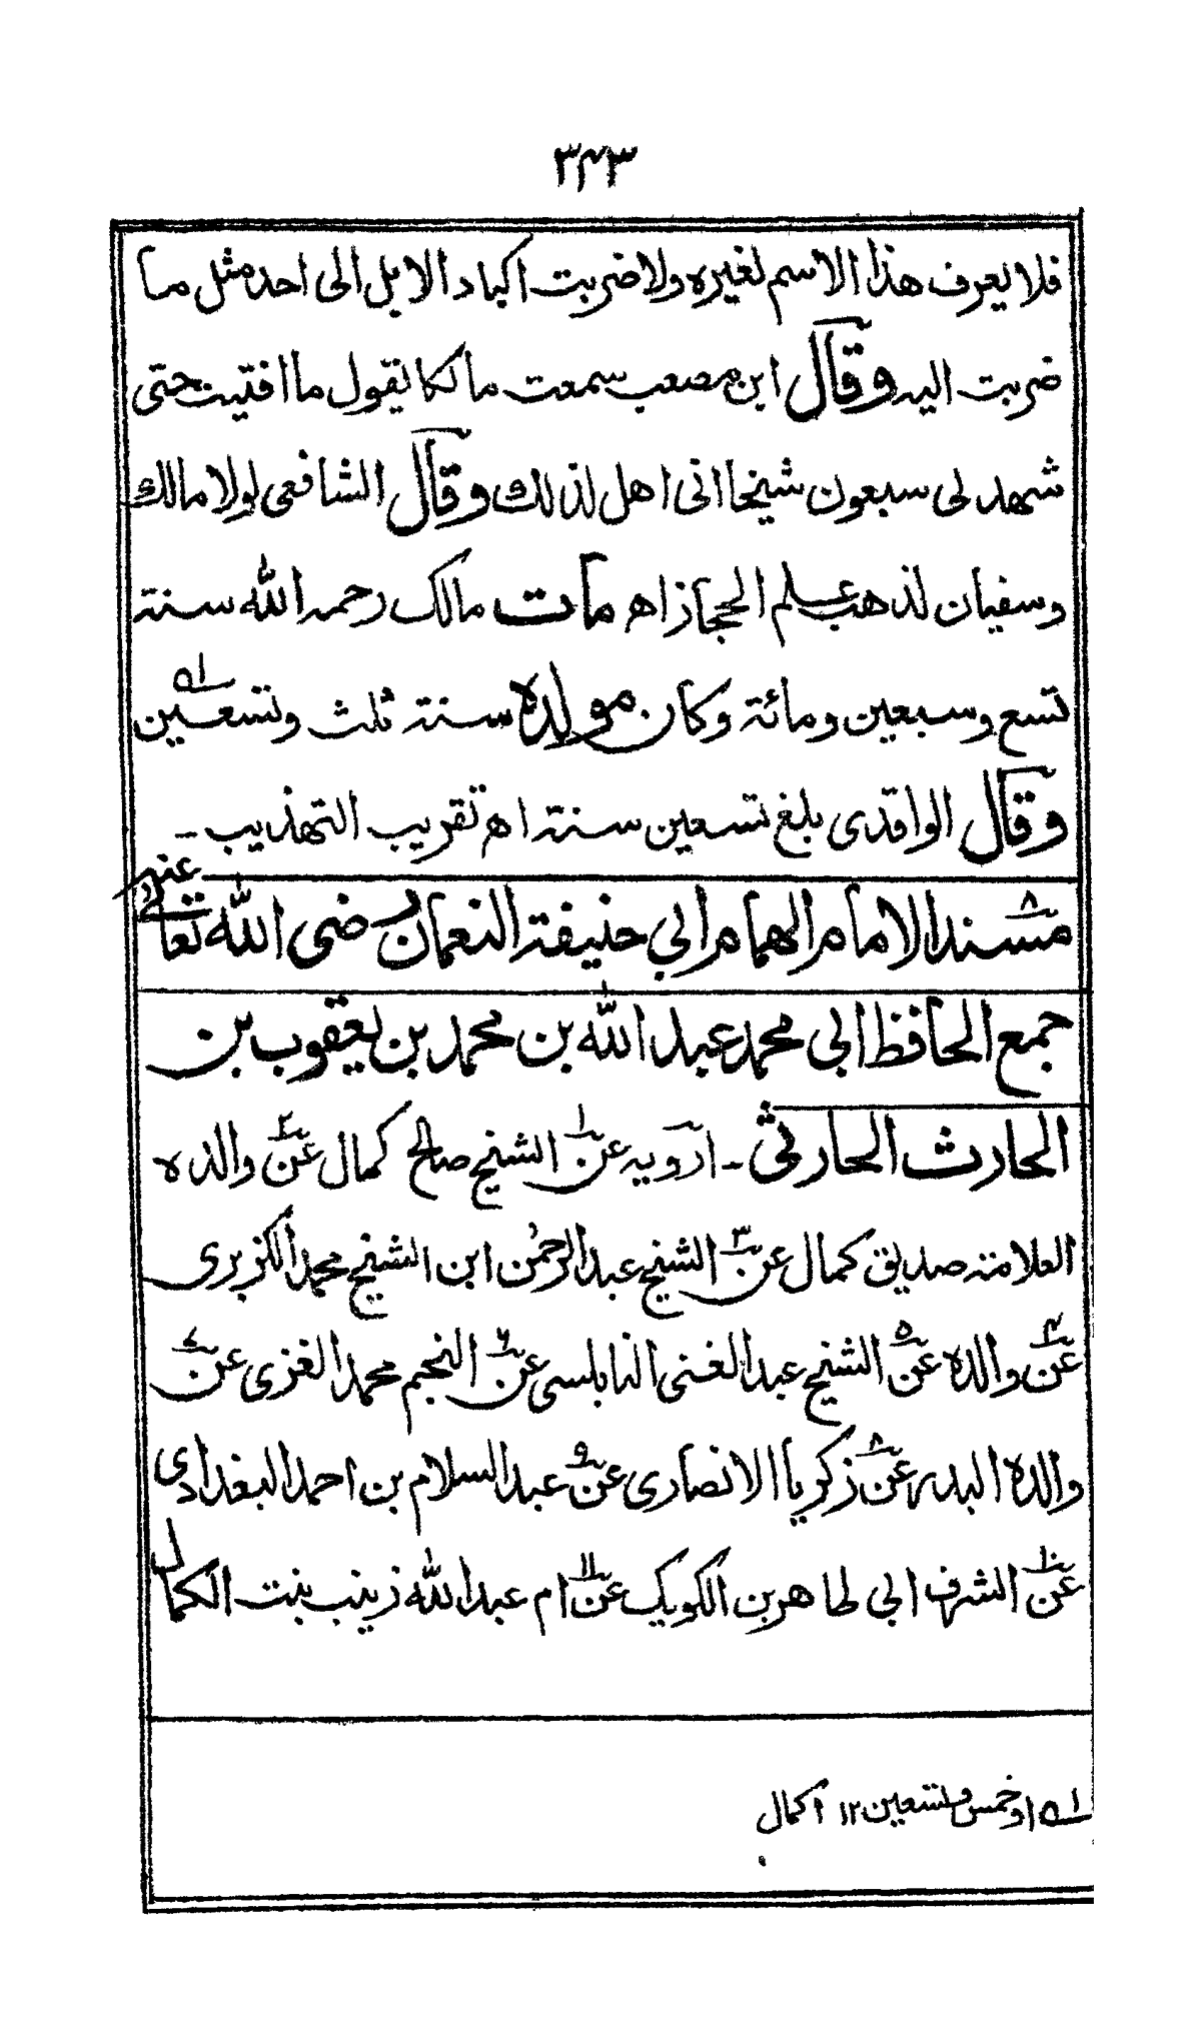 ٣٤٣
فلا يعرف هذا الاسم لغيره ولا ضربت اكباد الابل الى احد مثل ما
ضربت اليه وقال ابن مصعب سمعت مالكا يقول ما افتيت حتى
شهد لى سبعون شيخا انى اهل لذلك وقال الشافعى لولا مالك
وسفيان لذهب علم الحجاز اھ مات مالك رحمه الله سنة
تسع وسبعين ومائة وكان مولده سنة ثلث وتسعين ١ـه
وقال الواقدى بلغ تسعين سنة اھ تقريب التهذيب ـ
مسند الامام الهمام ابي حنيفة النعمان رضى الله تعالى عنه
جمع الحافظ ابى محمد عبد الله بن محمد بن يعقوب بن
الحارث الحارثي ـ ارويه عن ١ الشيخ صالح كمال عن ٢ والده
العلامة صديق كمال عن ٣ الشيخ عبد الرحمٰن ابن الشيخ محمد الكزبرى
عن ٤ والده عن ٥ الشيخ عبد الغنى النابلسى عن ٦ النجم محمد الغزى عن ٧
والده البدر عن ٨ زكريا الانصارى عن ٩ عبد السلام بن احمد البغدادى
عن ١٠ الشرف ابى طاهر بن الكويك عن ١١ ام عبد الله زينب بنت الكمال
١ـه او خمس وتسعين ١٢ اكمال